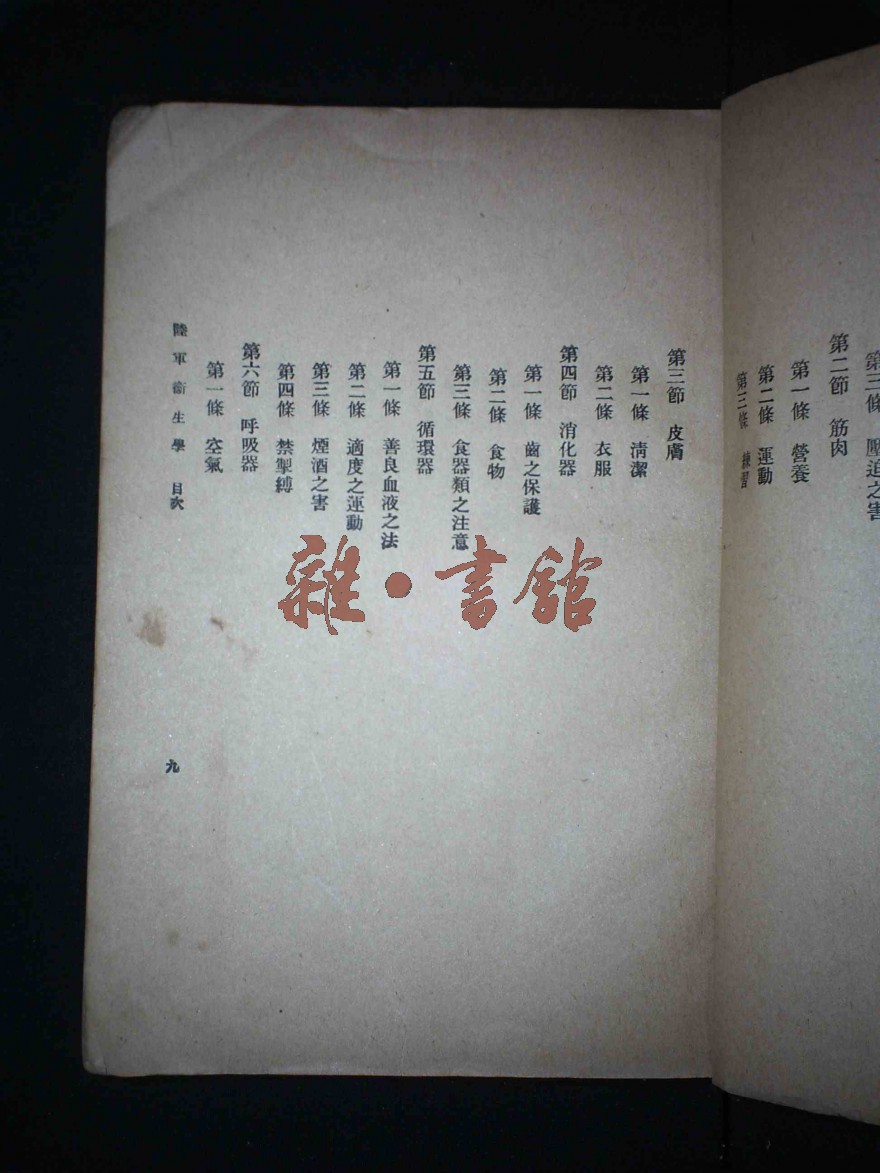 第三條 壓迫之害
第二節 筋肉
第一條 營養
第二條 運動
第三條 練習
第三節 皮膚
第一條 淸潔
第二條 衣服
第四節 消化器
第一條 齒之保護
第二條 食物
第三條 食器類之注意
第五節 循環器
第一條 善良血液之法
第二條 適度之運動
第三條 煙酒之害
第四條 禁掣縛
第六節 呼吸器
第一條 空氣
陸軍衞生學 目次
九
雜·書館